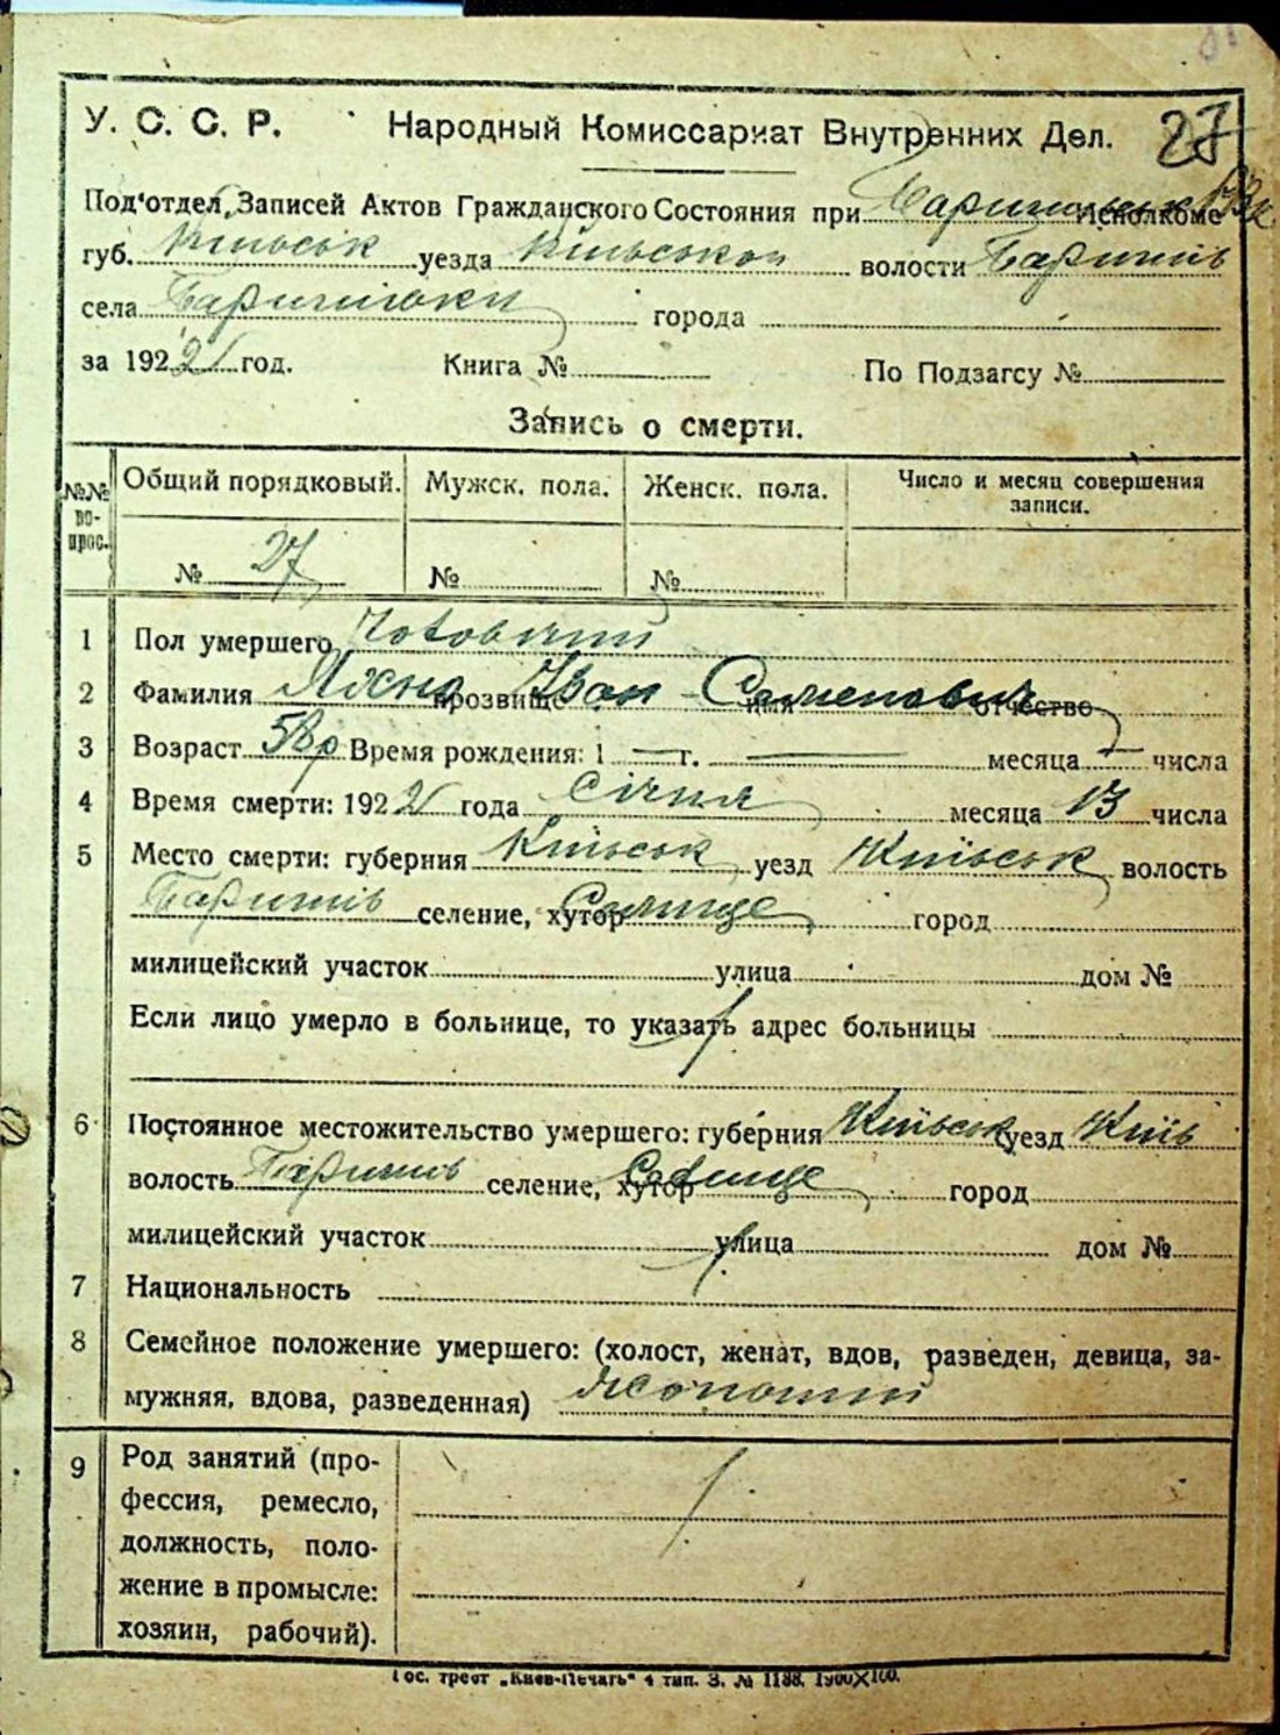 27
У. С. С. Р. Народный Комиссариат Внутренних Дел.
Под'отдел Записей Актов Гражданского Состояния при Исполкоме
губ. Київськ уезда Київської волости Баришів
села Баришівки города
за 1922 год. Книга № По Подзагсу №
Запись о смерти.
№№ вопрос. Общий порядковый. Мужск. пола. Женск. пола. Число и месяц совершения записи.
№ 27 № №
1 Пол умершего Чоловічий
2 Фамилия Яхно прозвище Іван имя Семенович отчество
3 Возраст 58 р Время рождения: 1 — г. — месяца — числа
4 Время смерти: 1922 года Січня месяца 13 числа
5 Место смерти: губерния Київськ уезд Київськ волость
Баришів селение, хутор Селище город
милицейский участок улица дом №
Если лицо умерло в больнице, то указать адрес больницы
6 Постоянное местожительство умершего: губерния Київськ уезд Київ
волость Баришів селение, хутор Селище город
милицейский участок улица дом №
7 Национальность
8 Семейное положение умершего: (холост, женат, вдов, разведен, девица, за-
мужняя, вдова, разведенная) жонатий
9 Род занятий (про-
фессия, ремесло,
должность, поло-
жение в промысле:
хозяин, рабочий).
Гос. трест „Киев-Печать" 4 тип. З. № 1188. 1900×100.